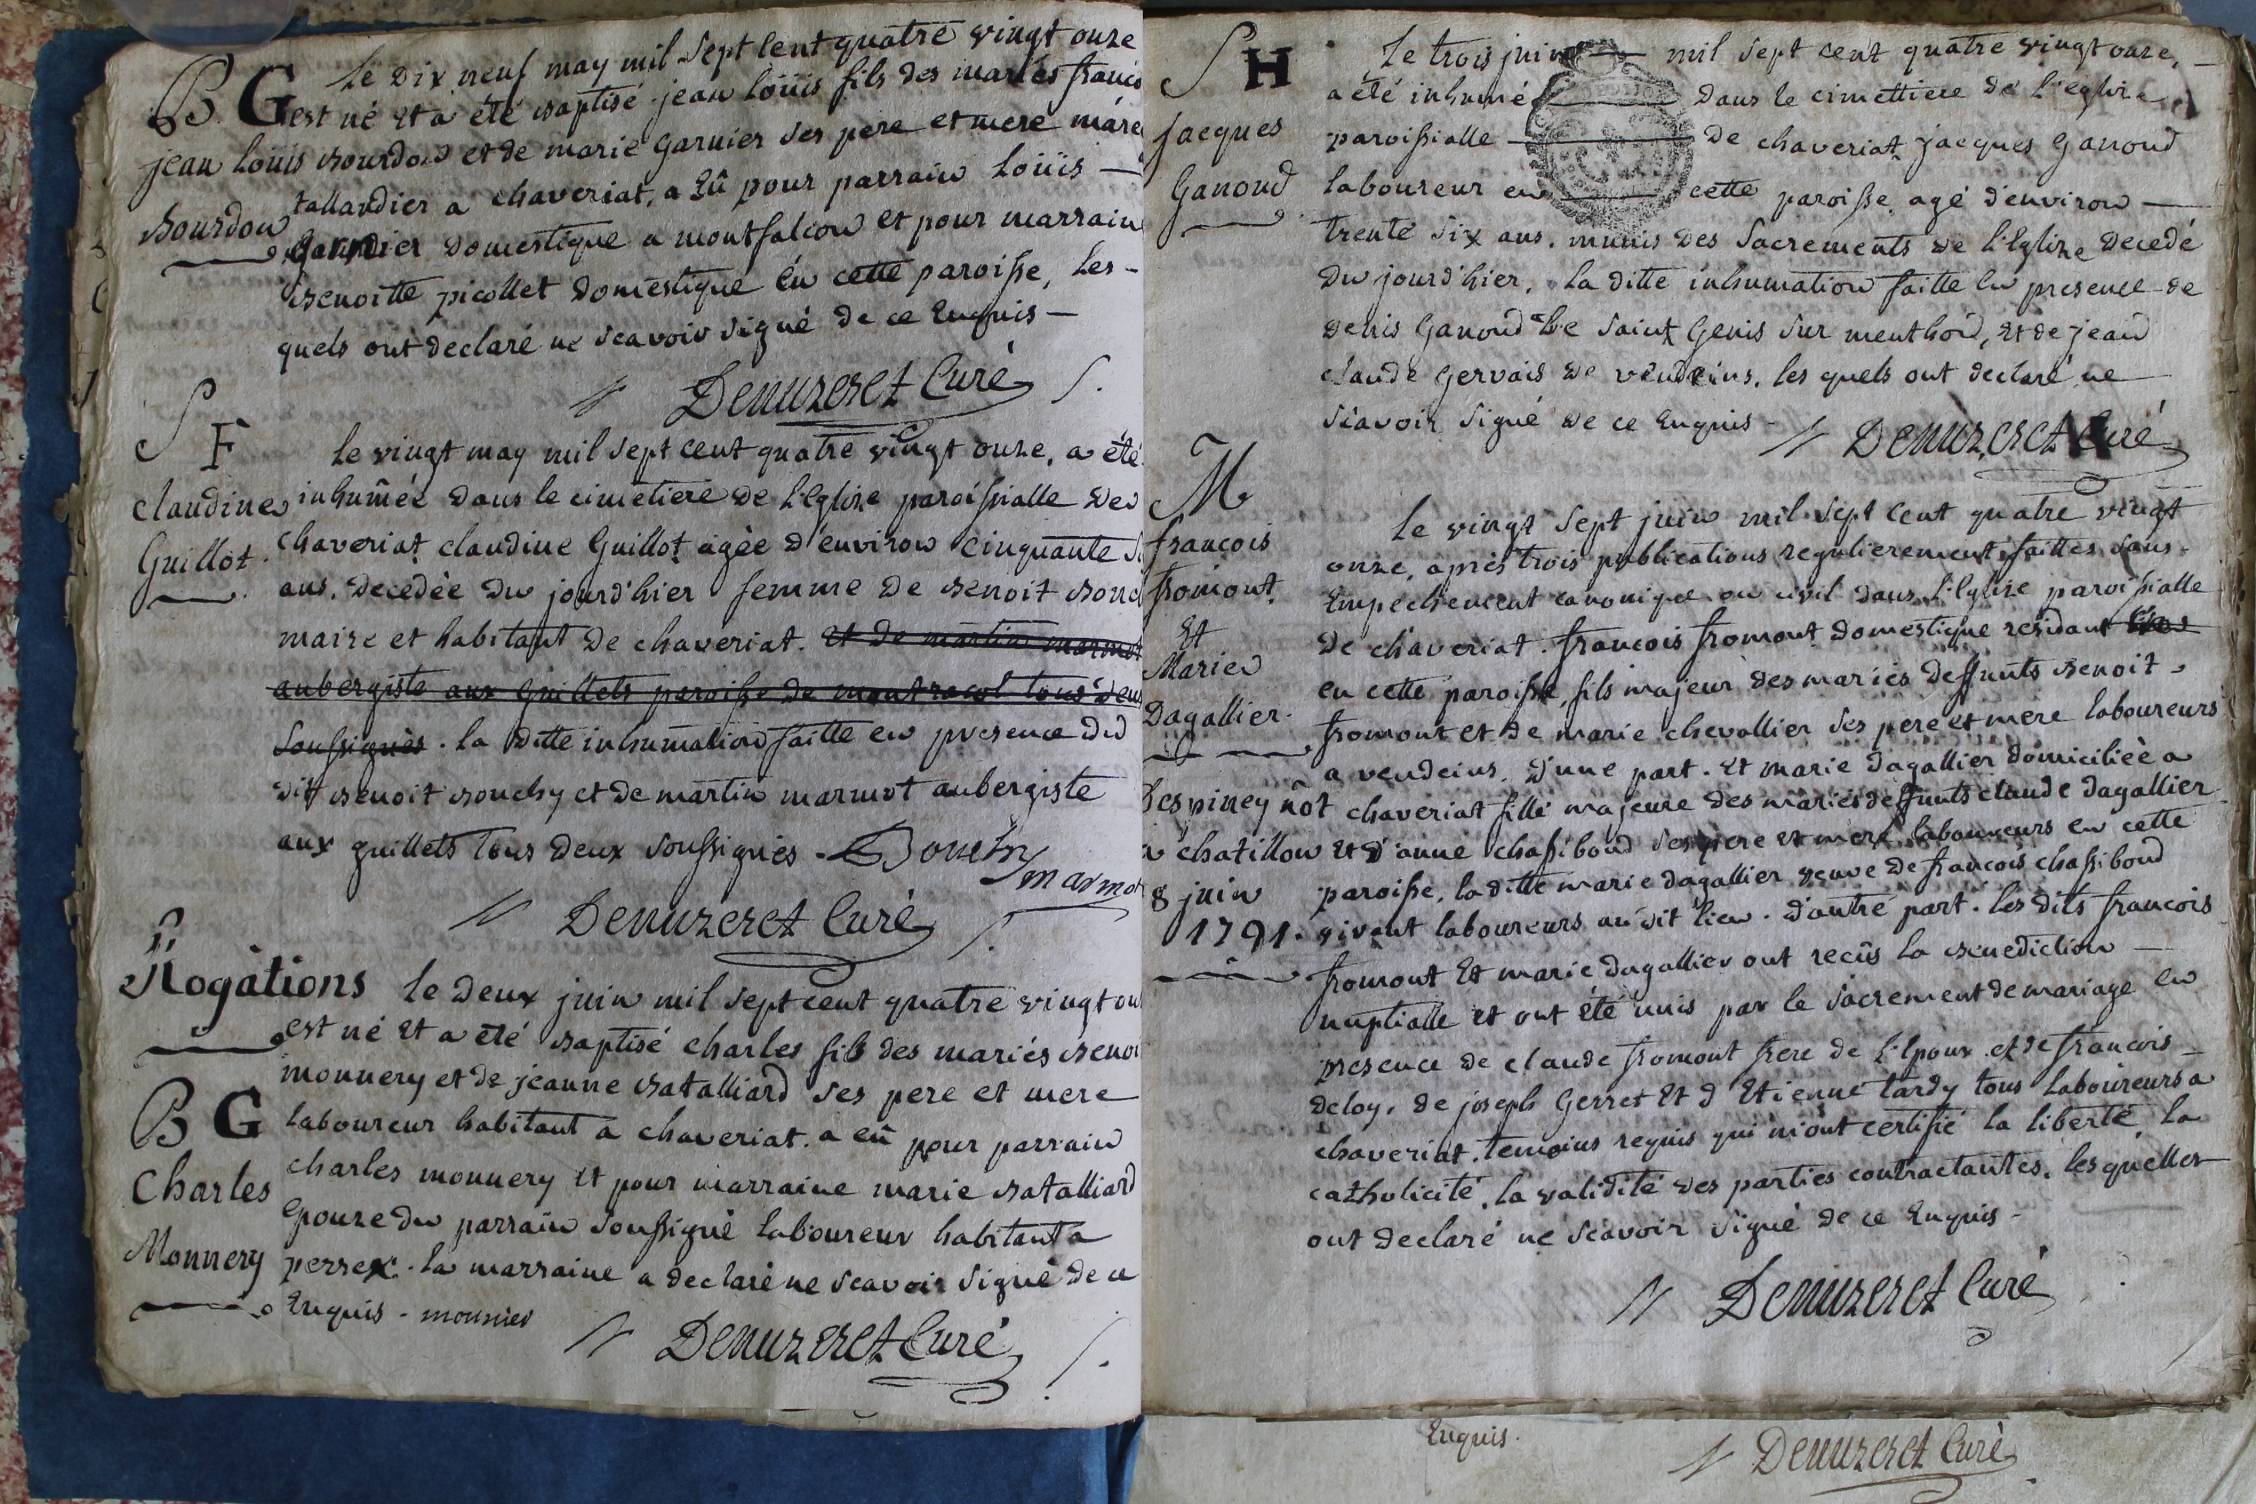 B G
jean loüis
bourdon
Le Dix neuf may mil sept cent quatre vingt onze
est né et a été baptisé jean loüis fils des mariés
bourdon et de marie garnier ses pere et mere
tallandier a chaveriat, a Eû pour parrain loüis —
garnier domestique a montfalcon et pour marraine
benoitte picollet domestique en cette paroisse, les-
quels ont declaré ne scavoir signé de ce Enquis —
Denuzeret Curé
S F
claudine
Guillot
Le vingt may mil sept cent quatre vingt onze, a été
inhumée dans le cimetiere de l'Eglize paroissialle de
chaveriat claudine Guillot agèe d'environ cinquante
ans, decedèe du jourd'hier femme de benoit
maire et habitant de chaveriat. et de martin marmot
aubergiste aux guillets paroisse de montracol tous deux
soussignès. la ditte inhumation faitte en presence du
dit benoit bouchy et de martin marmot aubergiste
aux guillets tous deux soussignès. Bouchy
marmot
Denuzeret Curé
Rogations
B G
Charles
Monnery
Le Deux juin mil sept cent quatre vingt
est né et a été baptisé charles fils des mariés
monnery et de jeanne bataillard ses pere et mere
laboureur habitant a chaveriat. a eû pour parrain
charles monnery et pour marraine marie batalliard
Epouze du parrain soussigné laboureur habitant a
perrex. la marraine a declaré ne scavoir signé de ce
Enquis - monnier
Denuzeret Curé
S H
jacques
Ganoud
Le trois juin — mil sept cent quatre vingt onze,
a été inhumé — dans le cimettiere de l'eglize
paroissialle — de chaveriat jacques ganoud
laboureur en — cette paroisse agé d'environ —
trente six ans. munis des sacrements de l'Eglize decedé
du jourd'hier. la ditte inhumation faitte en presence de
denis Ganoud de saint Genis sur menthon, et de jean
claude gervais de vendeins. les quels ont declaré ne
scavoir signé de ce Enquis -
Denuzeret Curé
M
françois
fromont
Et
Marie
Dagallier.
a chatillon
8 juin
1791.
Le vingt sept juin mil sept cent quatre vingt
onze, après trois publications regulierement faittes sans
Empechement canonique ou civil dans l'Eglize paroissialle
de chaveriat. françois fromont domestique residant
en cette paroisse, fils majeur des mariés deffunts benoit
fromont et de marie chevallier ses pere et mere laboureurs
a vendeins, d'une part. Et marie dagallier domiciliée a
chaveriat fille majeure des mariés deffunts claude dagallier
Et d'anne chassiboud ses pere et mere laboureurs en cette
paroisse, la ditte marie dagallier veuve de francois chassiboud
vivant laboureurs au dit lieu. d'autre part. les dits francois
fromont Et marie dagallier ont recûs la benediction —
nuptialle et ont été unis par le sacrement de mariage en
presence de claude fromont frere de l'Epoux et de francois
deloy, de joseph Gerret Et d'Etienne tardy tous laboureurs a
chaveriat. temoins requis qui m'ont certifié la liberté, la
catholicité, la validité des parties contractantes, lesquelles
ont declaré ne scavoir signé de ce Enquis -
Denuzeret Curé
Enquis.
Denuzeret Curè